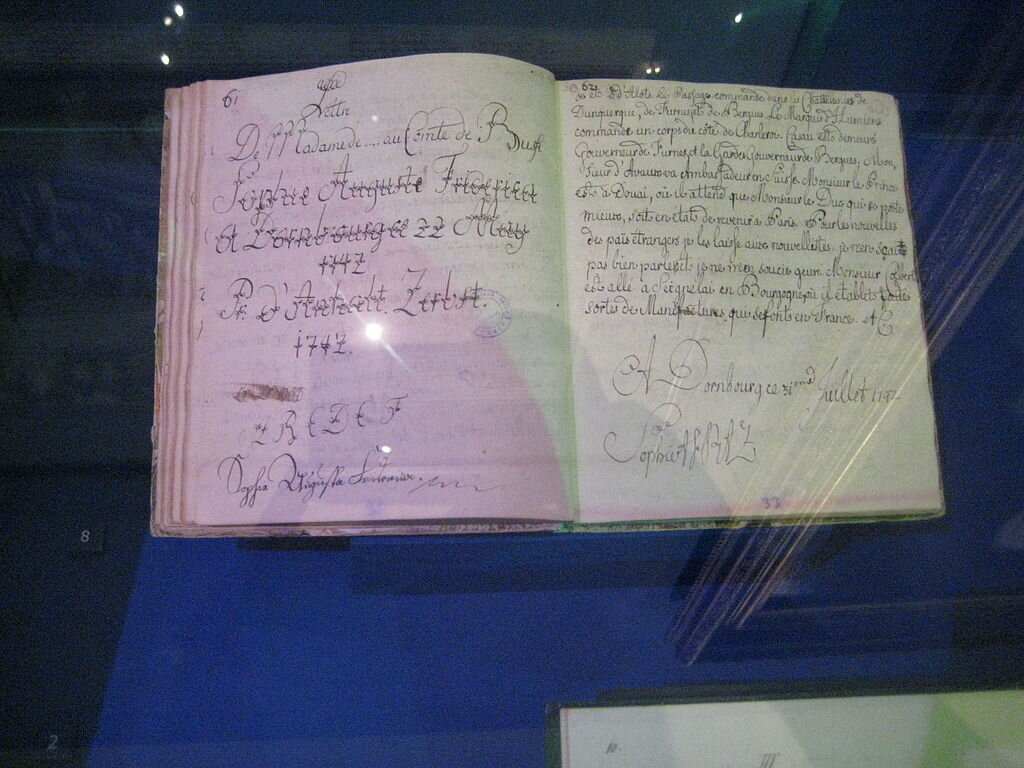 61
Lettre
De Madame de ... au Comte de Bussi
Sophie Auguste Friderica
A Dornbourg ce 22 May
1742
Pr. d'Anhalt. Zerbst.
1742.
Sophia Augusta
62
d'Alots. le Passage commande dans les Chatellenies de
Dunquerque, de Furnes, et de Bergues. Le Marquis d'Humieres
commande un corps du côté de Charleroi. Casau est demeuré
Gouverneur de Furnes, et la Garde Gouverneur de Bergues, Mon,
sieur d'Avaux va Ambassadeur en Suisse. Monsieur le Prince
est à Douai, où il attend que Monsieur le Duc qui se porte
mieux, soit en état de revenir à Paris. Pour les nouvelles
des païs étrangers je les laisse aux nouvellistes, je n'en scait
pas bien parler, et je ne m'en soucie guere. Monsieur Colbert
est allé à Seignelai en Bourgogne, où il établit toutes
sortes de Manifactures qui se font en France.
A Dornbourg ce 31 Juillet
Sophie
33
8
2
10.
III